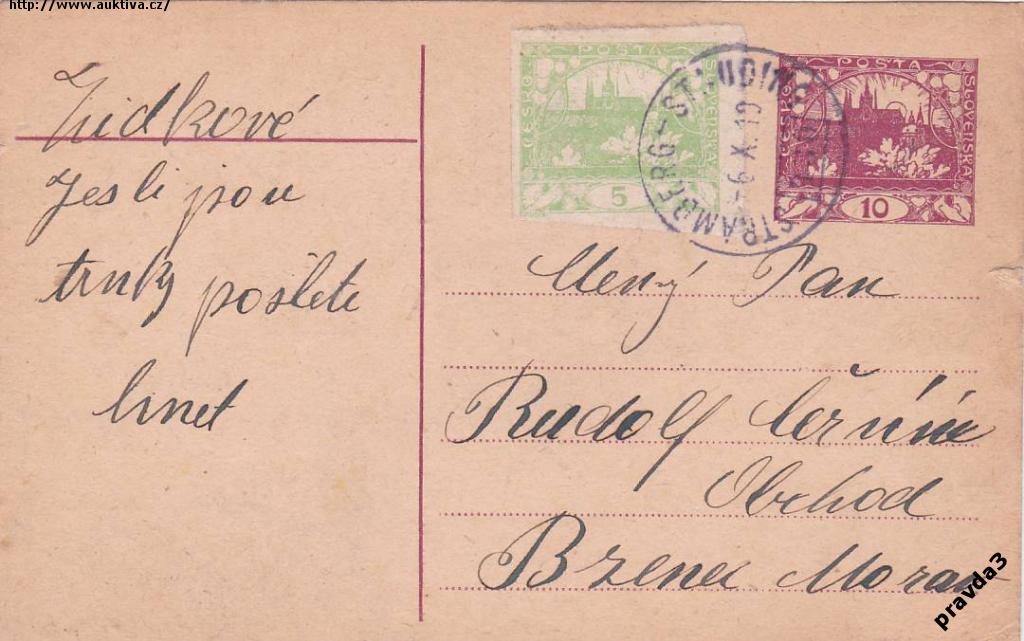 http://www.auktiva.cz/
Židkové
Jesli jsou
trnky pošlete
hnet
POŠTA
ČESKO
SLOVENSKÁ
5
POŠTA
ČESKO
SLOVENSKÁ
10
ŠTRAMBERG - STAUDING
-6.X.19
Ctený Pan
Rudolf
Obchod
Bzenec Morav
pravda3